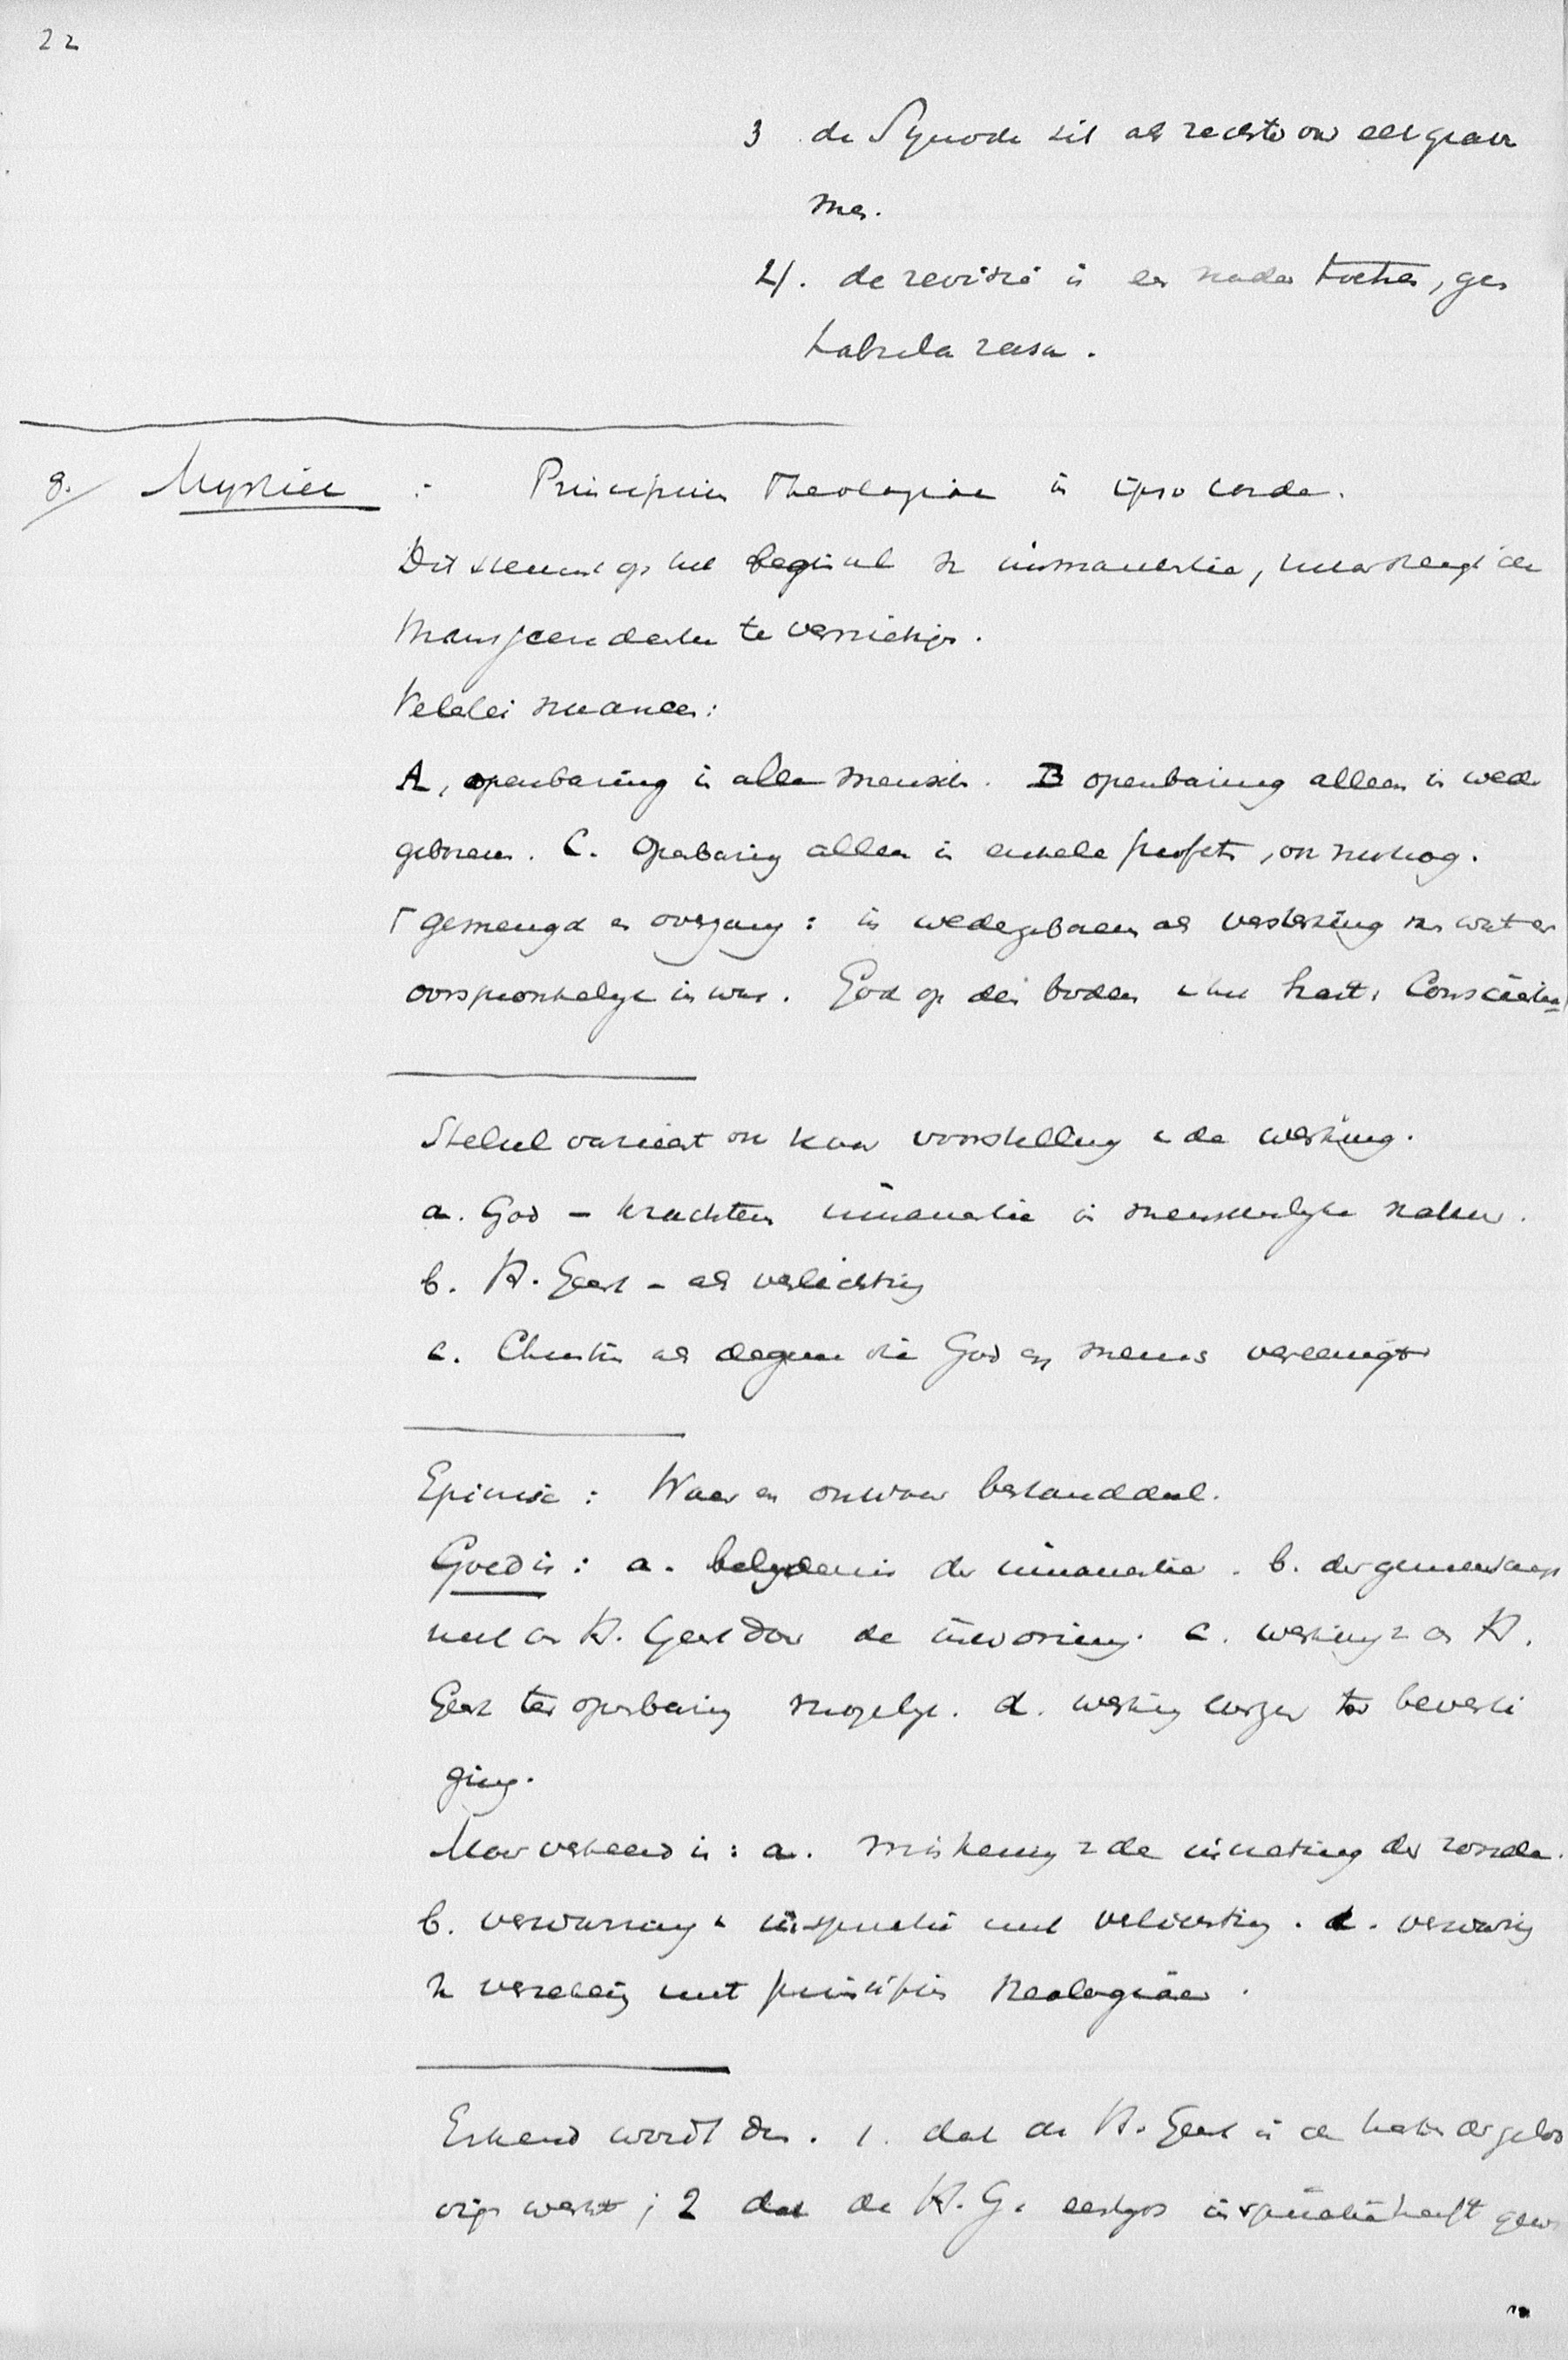 22
3 de Synode zit als rechter over elk grava
men.
4. de revisie is een nader toetsen, geen
tabula rasa.
8./ Mystiek : Principium Theologiae in ipso corde.
Dit steunt op het beginsel der immanentie, maar dreigt de
transcendentie te vernietigen.
Velerlei nuances:
A, openbaring in alle menschen. B openbaring alleen in weder
geborenen. C. Openbaring alleen in enkele profeten, ook nu nog.
gemengd en overgang: in wedergeboren als versterking van wat er
oorspronkelijk in was. God op den bodem van het hart. Conscientia
Stelsel varieert ook naar voorstelling van de werking.
a. God – krachtens immanentie in menschelijke natuur.
b. H. Geest – als verlichting
c. Christus als degene die God en mensch vereenigt
Epicrisis : Waar en onwaar bestanddeel.
Goed is : a. belijdenis der immanentie. b. der gemeenschap
met den H. Geest door de inwoning. c. werking van den H.
Geest ter openbaring mogelijk. d. werking ter bevesti
ging.
Maar verkeerd is : a. miskenning van de inwerking der zonde.
b. verwarring van inspiratie met verlichting. d. verwarring
van met principium theologiae.
Erkend wordt dus. 1. dat de H. Geest in de harten der geloo
vigen werkt ; 2 dat de H. G. eertijds inspiratie heeft